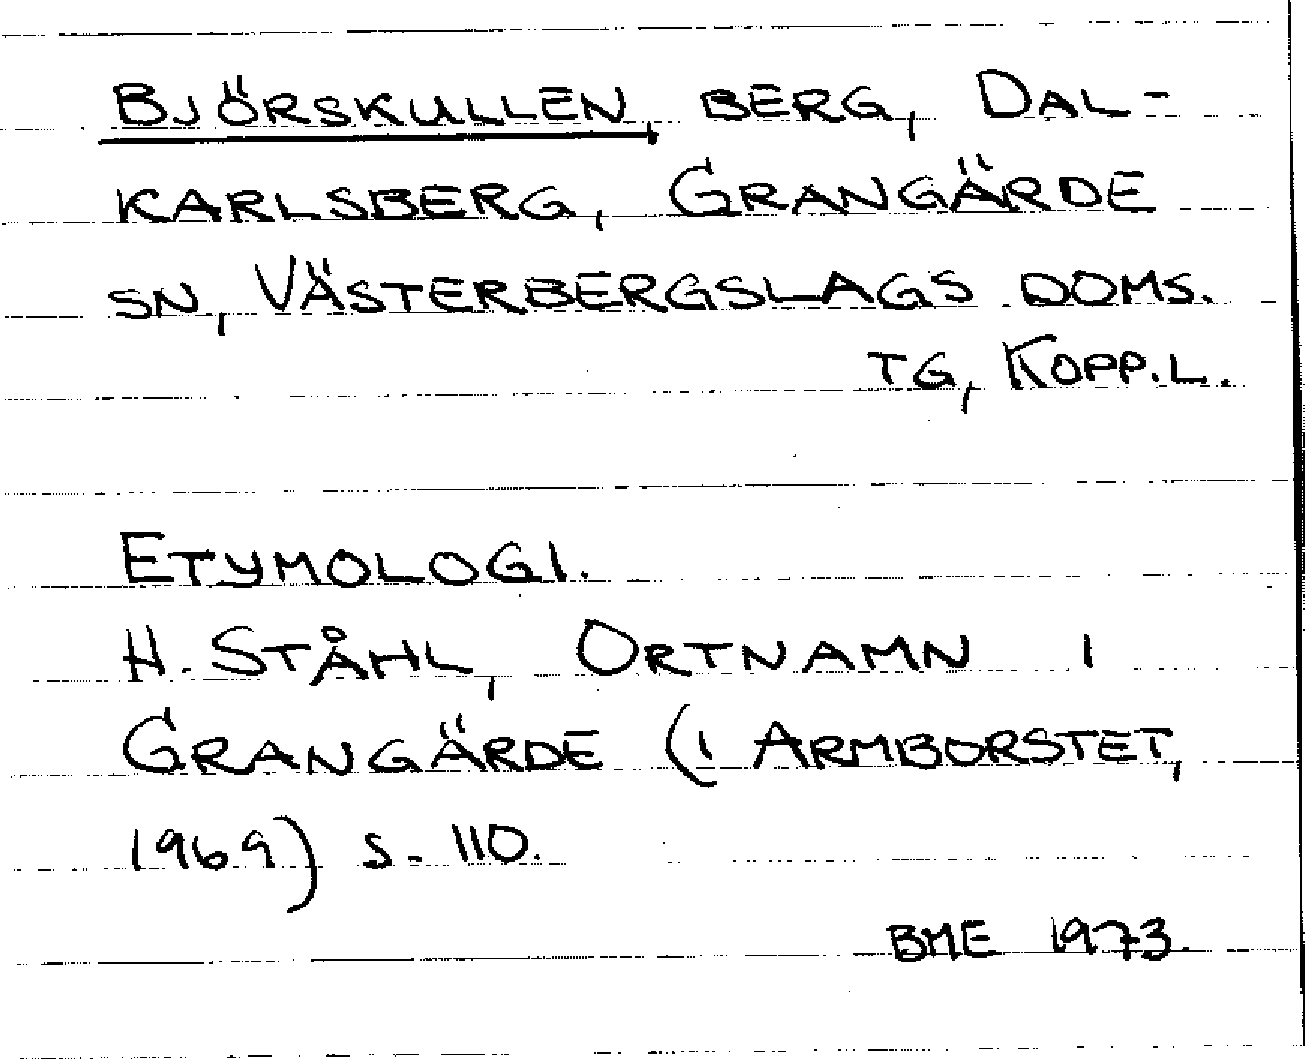 BJÖRSKULLEN, BERG, DAL-
KARLSBERG, GRANGÄRDE
SN, VÄSTERBERGSLAGS DOMS.
TG, KOPP.L.
ETYMOLOGI.
H. STÅHL, ORTNAMN I
GRANGÄRDE (I ARMBORSTET,
1969) S. 110.
BME 1973.